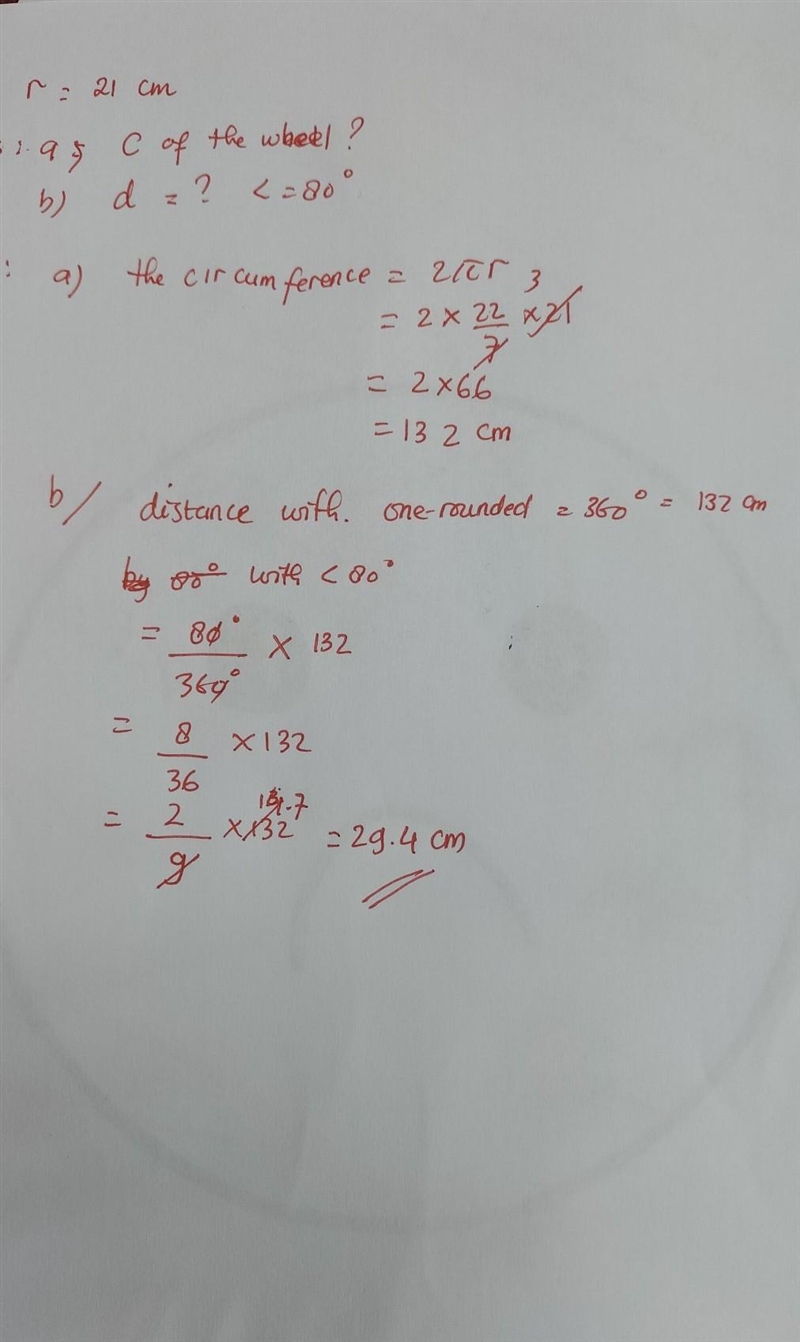 r = 21 cm
a) C of the wheel?
b) d = ? < = 80°
: a) the circumference = 2πr
= 2 × 22/7 × 21 3
= 2 × 66
= 132 cm
b/ distance with. one-rounded = 360° = 132 cm
by 80° with < 80°
= 80°/360° × 132
= 8/36 × 132
= 2/9 × 132 = 29.4 cm